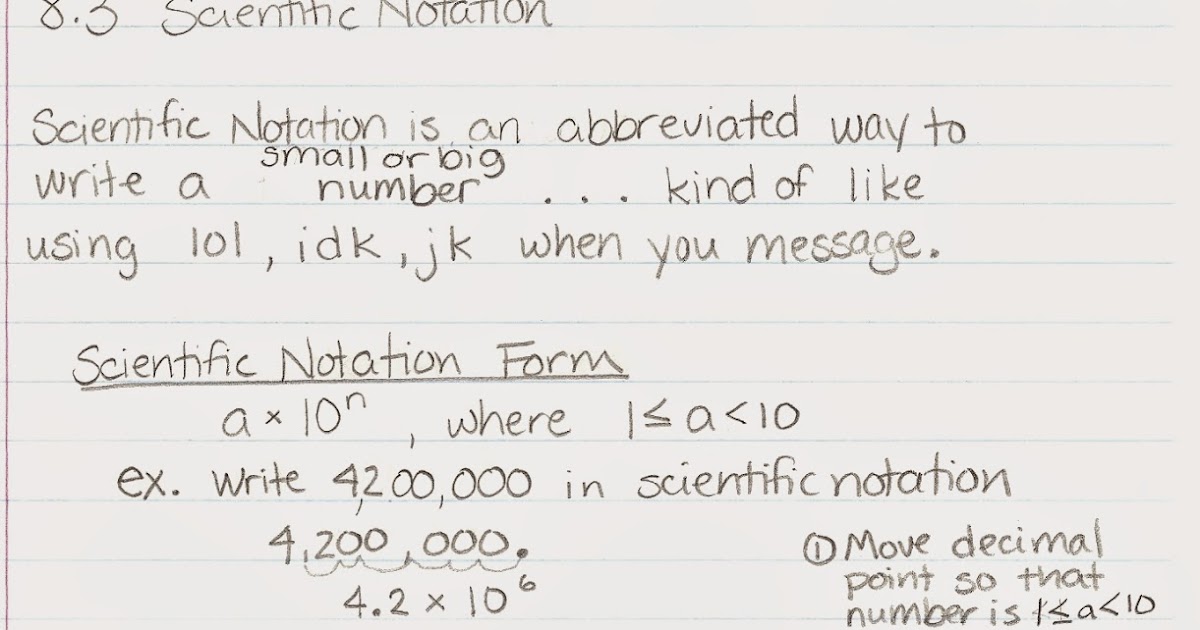 8.3 Scientific Notation
Scientific Notation is an abbreviated way to
small or big
write a number . . . kind of like
using lol, idk, jk when you message.
Scientific Notation Form
a × 10ⁿ, where 1 ≤ a < 10
ex. Write 4,200,000 in scientific notation
4,200,000.
4.2 × 10⁶
① Move decimal
point so that
number is 1 ≤ a < 10